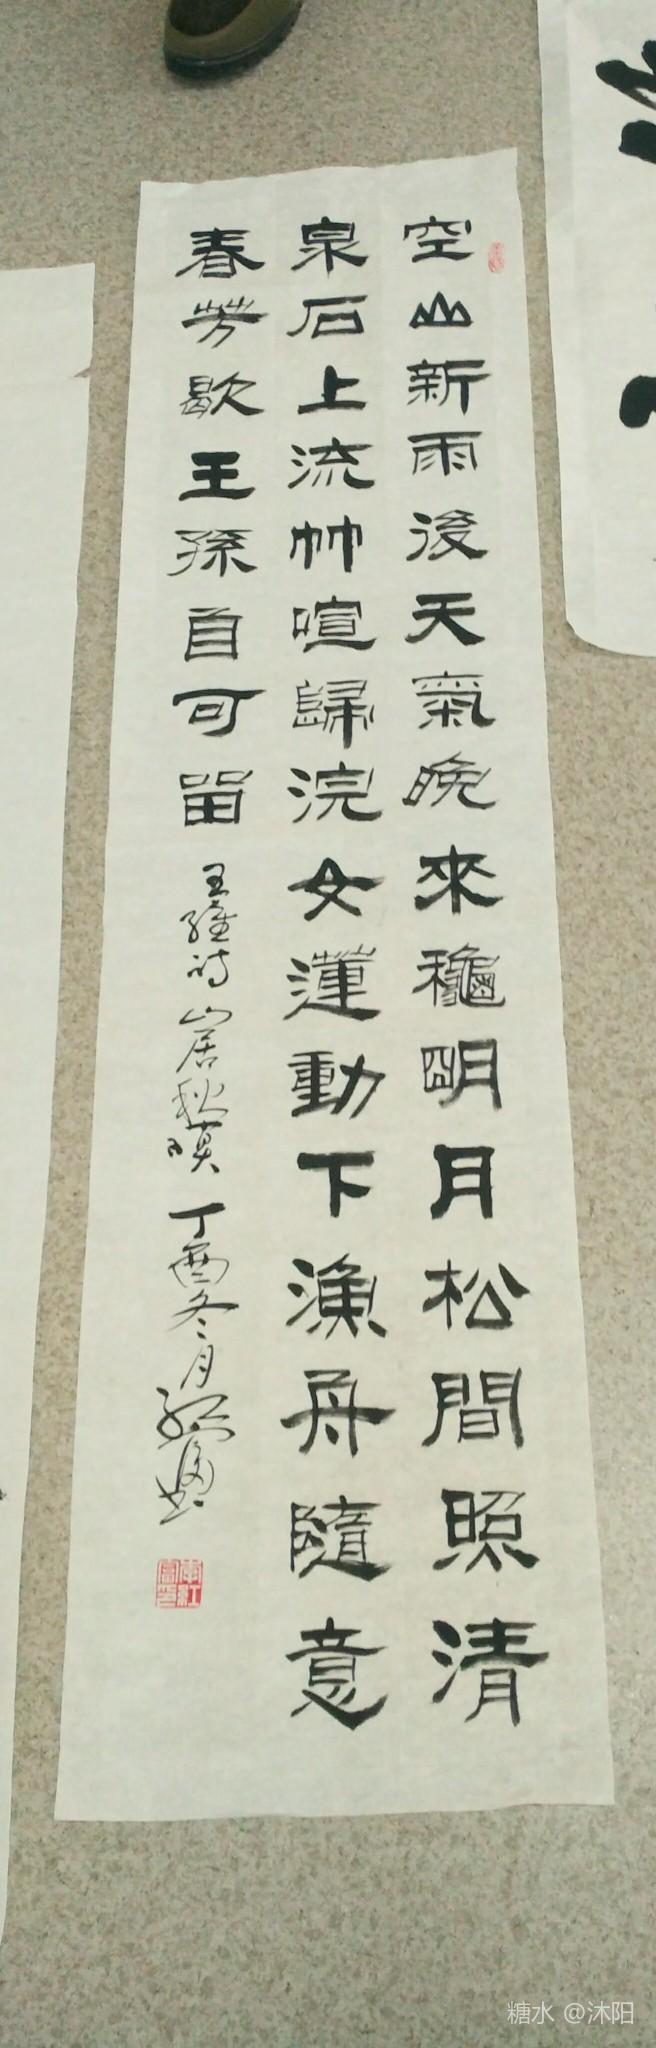 空山新雨後天氣晚來龝朙月松間照清
泉石上流竹喧歸浣女蓮動下漁舟隨意
春芳歇王孫自可留
王維詩山居秋暝丁酉冬月
糖水 @沐阳